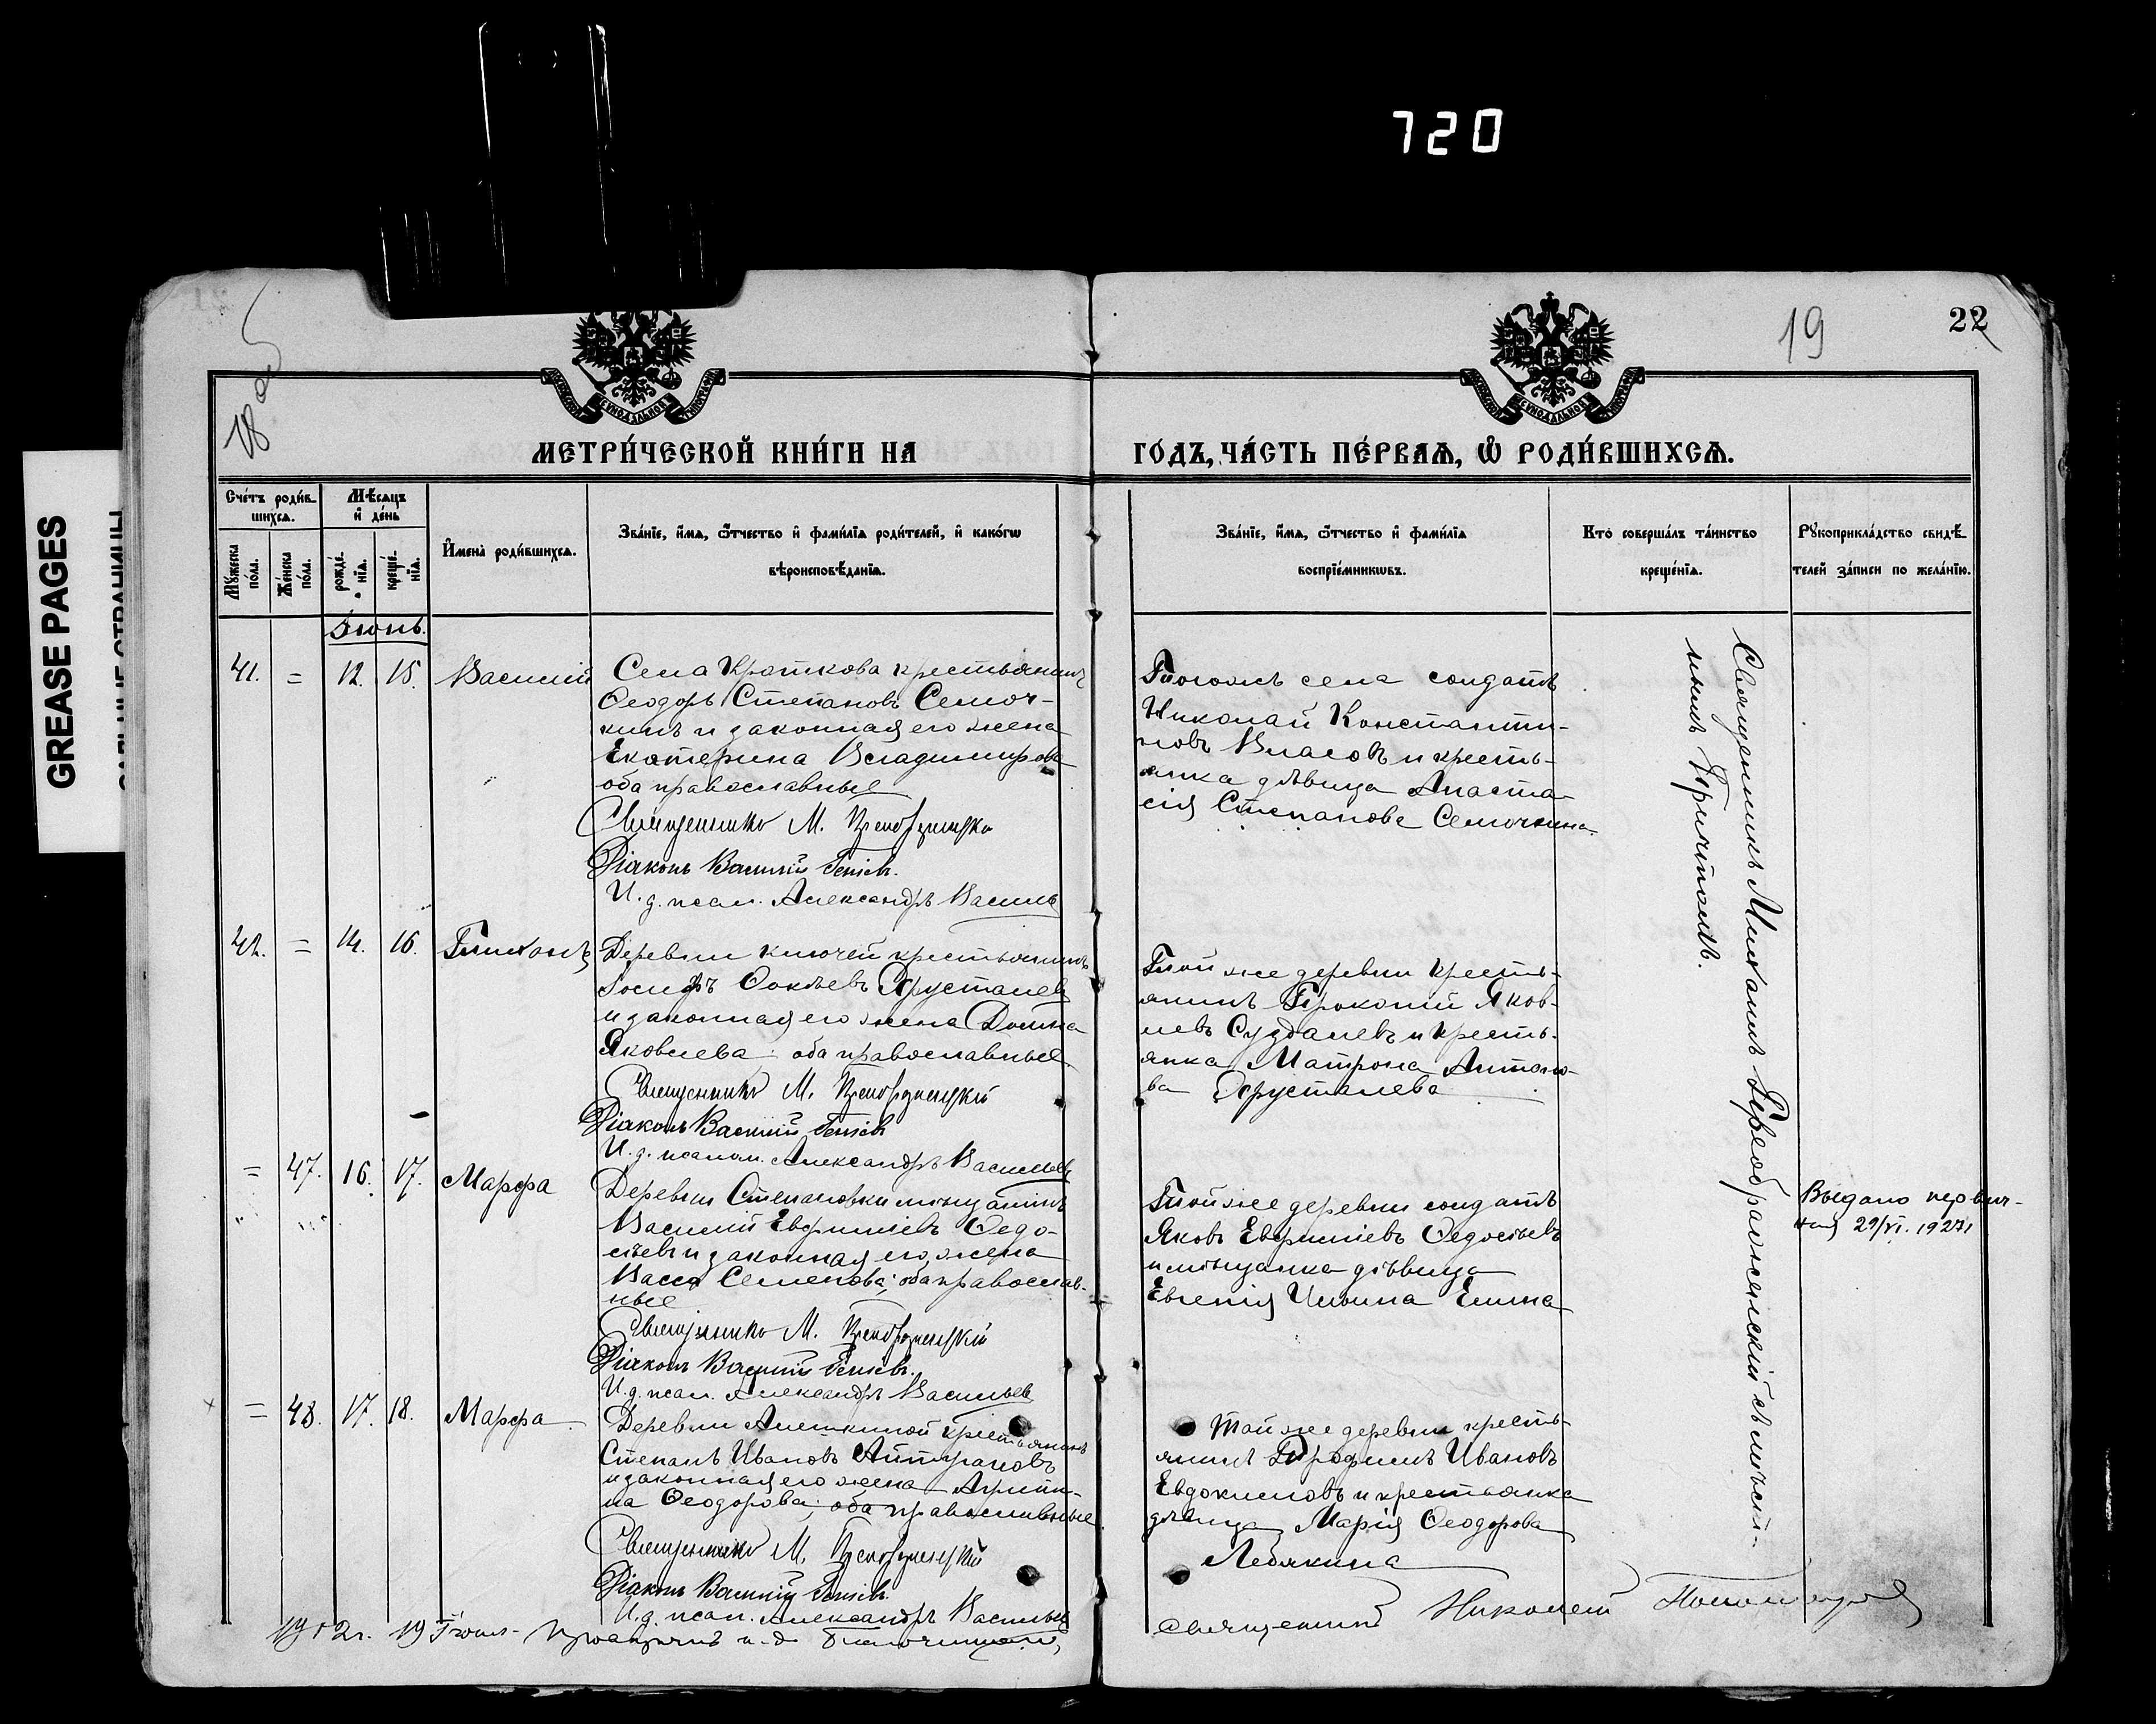 720
GREASE PAGES
18 об
19
22
МЕТРИ́ЧЕСКОЙ КНИ́ГИ НА
ГО́ДЪ, ЧА́СТЬ ПЕ́РВАѦ, Ѽ РОДИ́ВШИХСѦ.
Сче́тъ роди́в-
шихсѧ.
Мѣ́сѧцъ
и҆ де́нь
Мꙋ́жеска
по́ла.
Же́нска
по́ла.
рожде́-
нїѧ.
креще́-
нїѧ.
И҆мена̀ роди́вшихсѧ.
Зва́нїе, и҆́мѧ, ѻ҆́тчество и҆ фами́лїѧ роди́телей, и҆ како́гѡ
вѣроисповѣ́данїѧ.
Зва́нїе, и҆́мѧ, ѻ҆́тчество и҆ фами́лїѧ
воспрїе́мникѡвъ.
Кто̀ соверша́лъ та́инство
креще́нїѧ.
Рꙋкоприкла́дство свидѣ́-
телей за́писи по жела́нїю.
Іюнь.
41. = 12. 15. Василій
Села Кроткова крестьянинъ
Ѳеодоръ Степановъ Семоч-
кинъ и законная его жена
Екатерина Владимирова
оба православные
Священникъ М. Преображенскій
Діаконъ Василій
И. д. псал. Александръ Васильев
Тогожъ села солдатъ
Николай Константи-
новъ Власовъ и кресть-
янка дѣвица Анаста-
сія Степанова Семочкина.
42. = 14. 16. Тихонъ
Деревни Ключей крестьянинъ
Іосифъ Фокѣевъ Хрусталев
и законная его жена Домна
Яковлева; оба православные
Священникъ М. Преображенскій
Діаконъ Василій
И. д. псалом. Александръ Васильев
Той же деревни кресть-
янинъ Прокопій Яков-
левъ Суздалевъ и кресть-
янка Матрона Антоно-
ва Хрусталева
= 47. 16. 17. Марфа
Деревни Степановки мѣщанинъ
Василій Евфиміевъ Ѳедо-
сѣевъ и законная его жена
Васса Семенова; оба православ-
ные
Священникъ М. Преображенскій
Діаконъ Василій
И. д. псал. Александръ Васильев
Той же деревни солдатъ
Яковъ Евфиміевъ Ѳедосѣевъ
и мѣщанка дѣвица
Евгенія Ильина Елина
Выдано первич-
ная 29/VI. 1927
= 48. 17. 18. Марфа
Деревни Алешкиной крестьянинъ
Степанъ Ивановъ
и законная его жена Агрипи-
на Ѳеодорова; оба православные
Священникъ М. Преображенскій
Діаконъ Василій
И. д. псал. Александръ Васильев
Той же деревни кресть-
янинъ Трофимъ Ивановъ
Евдокимовъ и крестьянка
дѣвица Марія Ѳеодорова
Лебякина
Священникъ Михаилъ Преображенскій съ мѣстн-
нымъ Причтомъ.
1912 г. 19 Іюня и. д. благочиннаго,
священникъ Николай